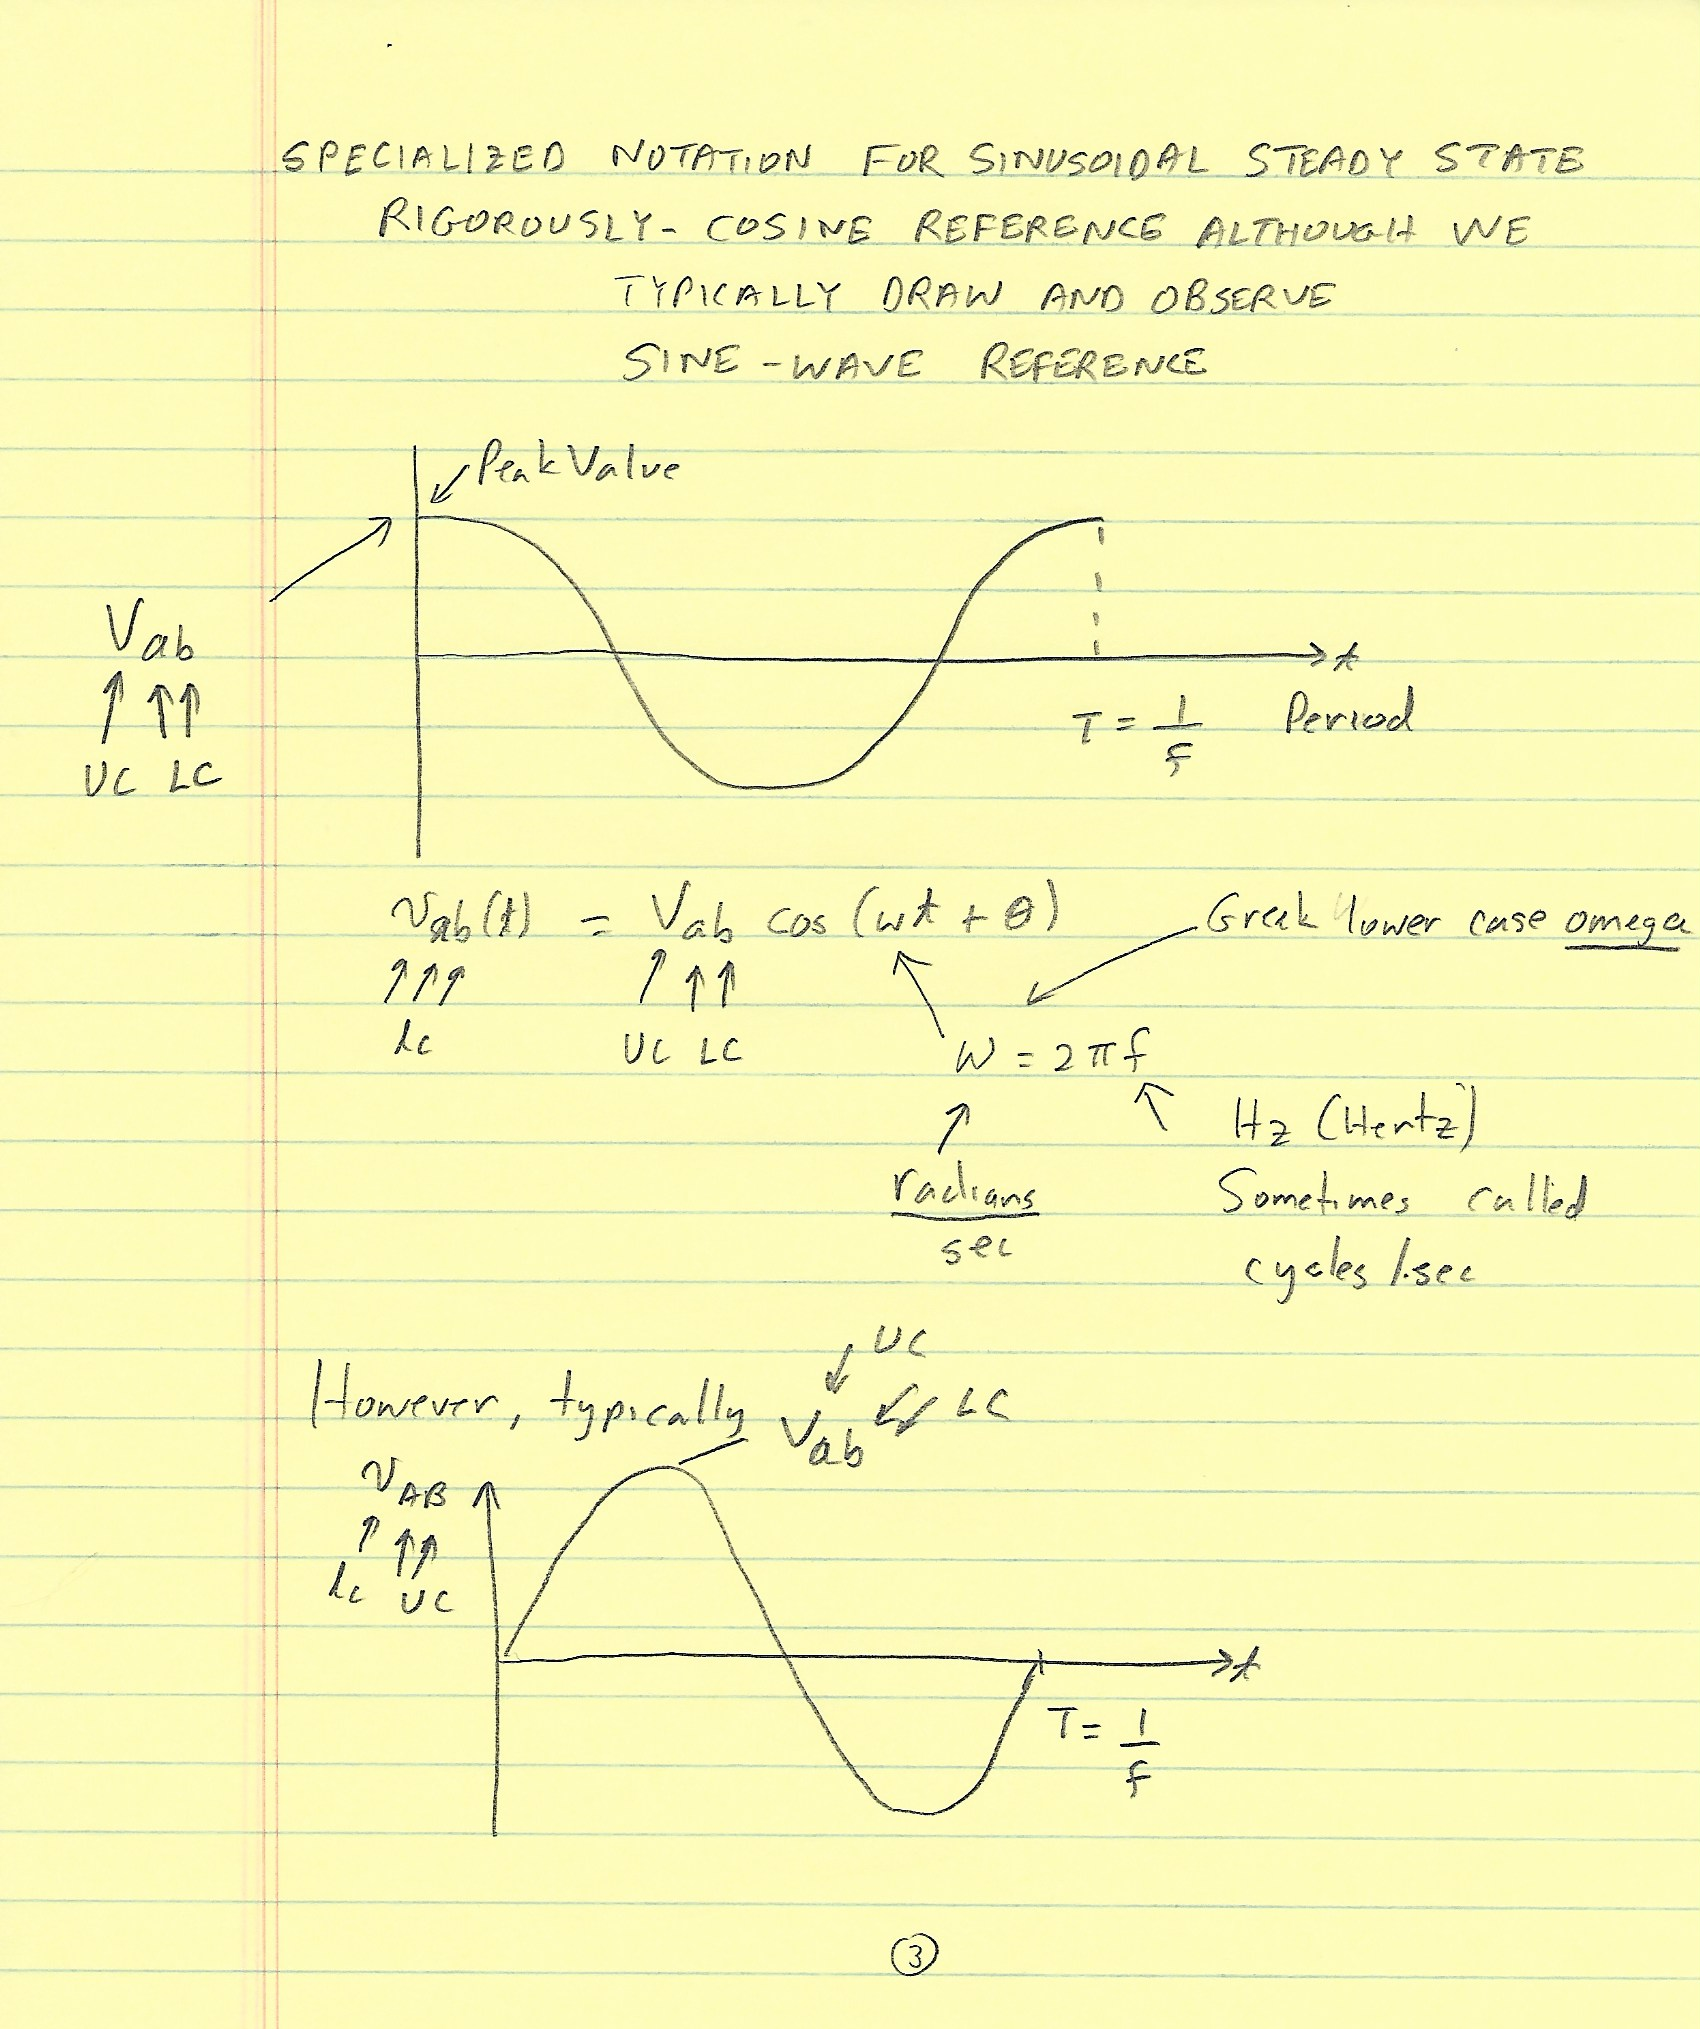 SPECIALIZED NOTATION FOR SINUSOIDAL STEADY STATE
RIGOROUSLY - COSINE REFERENCE ALTHOUGH WE
TYPICALLY DRAW AND OBSERVE
SINE-WAVE REFERENCE
Peak Value
Vab
UC LC
t
T = 1/f Period
vab(t) = Vab cos (ωt + θ)
Greek lower case omega
lc
UC LC
ω = 2πf
Hz (Hertz)
radians/sec
Sometimes called
cycles/sec
UC
However, typically Vab LC
vAB
lc UC
t
T = 1/f
3